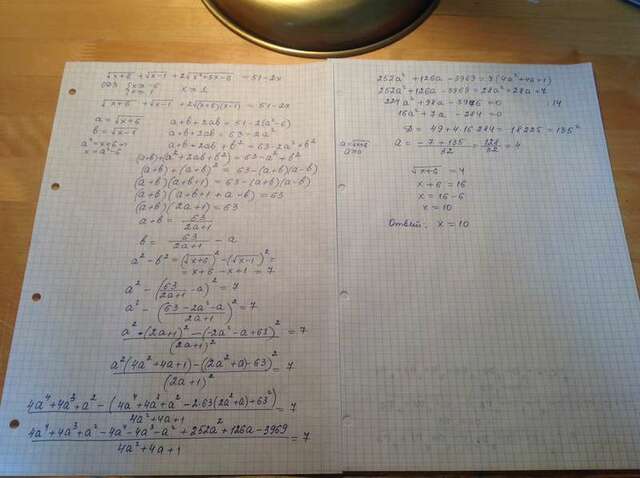 √x+6 + √x-1 + 2√x²+5x-6 = 51-2x
x ≥ 1
√x+6 + √x-1 + 2√(x+6)(x-1) = 51-2x
a = √x+6
a+b+2ab = 51-2(a²-6)
b = √x-1
a+b+2ab = 63-2a²
x = a²-6
a+b+2ab+b² = 63-2a²+b²
(a+b)+(a²+2ab+b²) = 63-a²+b²
(a+b)+(a+b)² = 63-(a+b)(a-b)
(a+b)(a+b+1) = 63-(a+b)(a-b)
(a+b)(a+b+1+a-b) = 63
(a+b)(2a+1) = 63
a+b = 63/2a+1
b = 63/2a+1 - a
a²-b² = (√x+6)²-(√x-1)² =
= x+6-x+1 = 7
a² - (63/2a+1 - a)² = 7
a² - (63-2a²-a/2a+1)² = 7
a²·(2a+1)²-(-2a²-a+63)²/(2a+1)² = 7
a²(4a²+4a+1)-(2a²+a-63)²/(2a+1)² = 7
4a⁴+4a³+a²-(4a⁴+4a³+a²-2·63(2a²+a)+63²)/4a²+4a+1 = 7
4a⁴+4a³+a²-4a⁴-4a³-a²+252a²+126a-3969/4a²+4a+1 = 7
252a²+126a-3969 = 7(4a²+4a+1)
252a²+126a-3969 = 28a²+28a+7
224a²+98a-3976 = 0 :14
16a²+7a-284 = 0
D = 49+4·16·284 = 18225 = 135²
a = √x+6
a ≥ 0
a = -7+135/32 = 128/32 = 4
√x+6 = 4
x+6 = 16
x = 16-6
x = 10
Ответ: x = 10